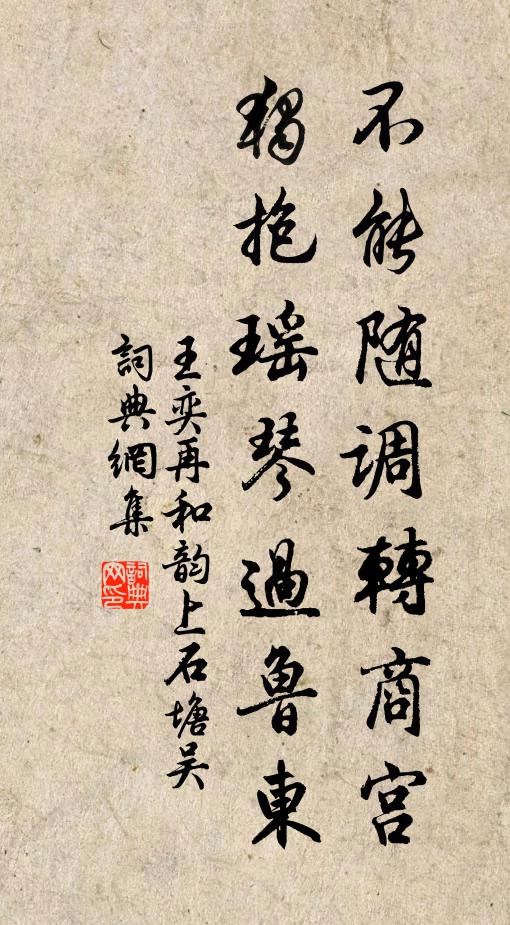 不能随调轉商宫
獨抱瑶琴過魯東
王奕再和韵上石塘吴
詞典網集
詞典网印